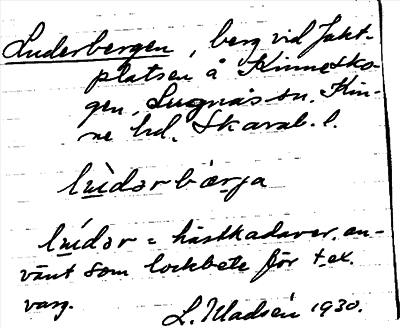 Luderbergen, berg vid Jakt-
platsen å Kinnesko-
gen, Lugnås sn. Kin-
ne hd. Skarab. l.
lùdərbærja
lúdər = hästkadaver, an-
vänt som lockbete för t. ex.
varg. L. Uladsén 1930.